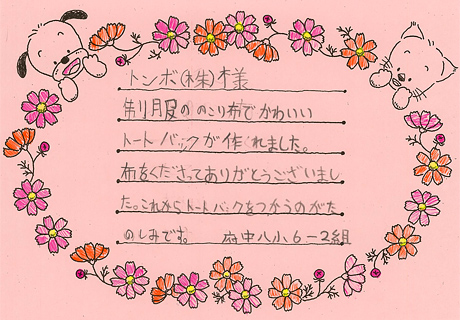 トンボ(株)様
制服ののこり布でかわいい
トートバックが作れました。
布をくださってありがとうございまし
た。これからトートバックをつかうのがた
のしみです。 府中八小6-2組